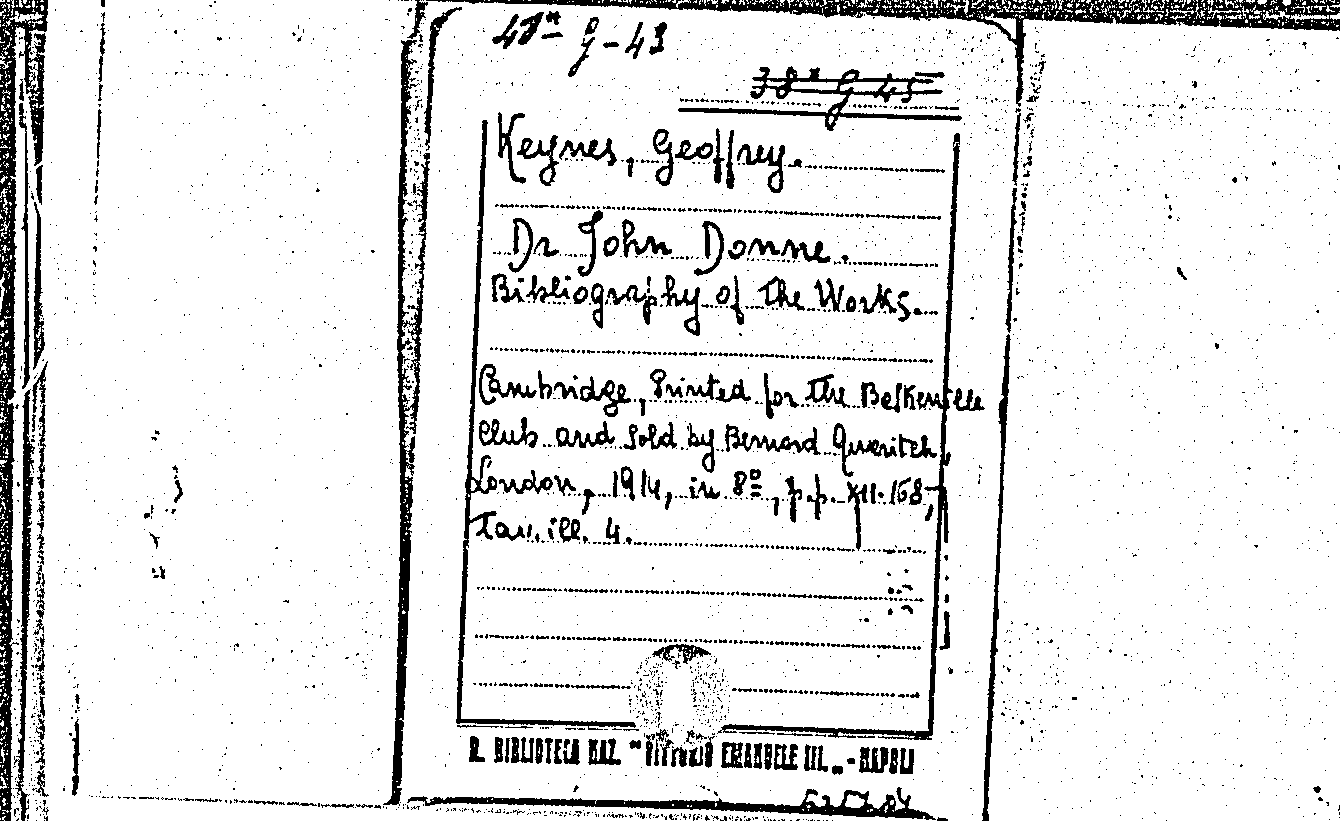 48ᵃ G-43
38ᵃ G 45
Keynes, Geoffrey.
Dr John Donne.
Bibliography of the Works.
Cambridge, Printed for the Baskerville
Club and sold by Bernard Quaritch,
London, 1914, in 8º, p.p. XII-168,
Tav. ill. 4.
R. BIBLIOTECA NAZ. "VITTORIO EMANUELE III." - NAPOLI